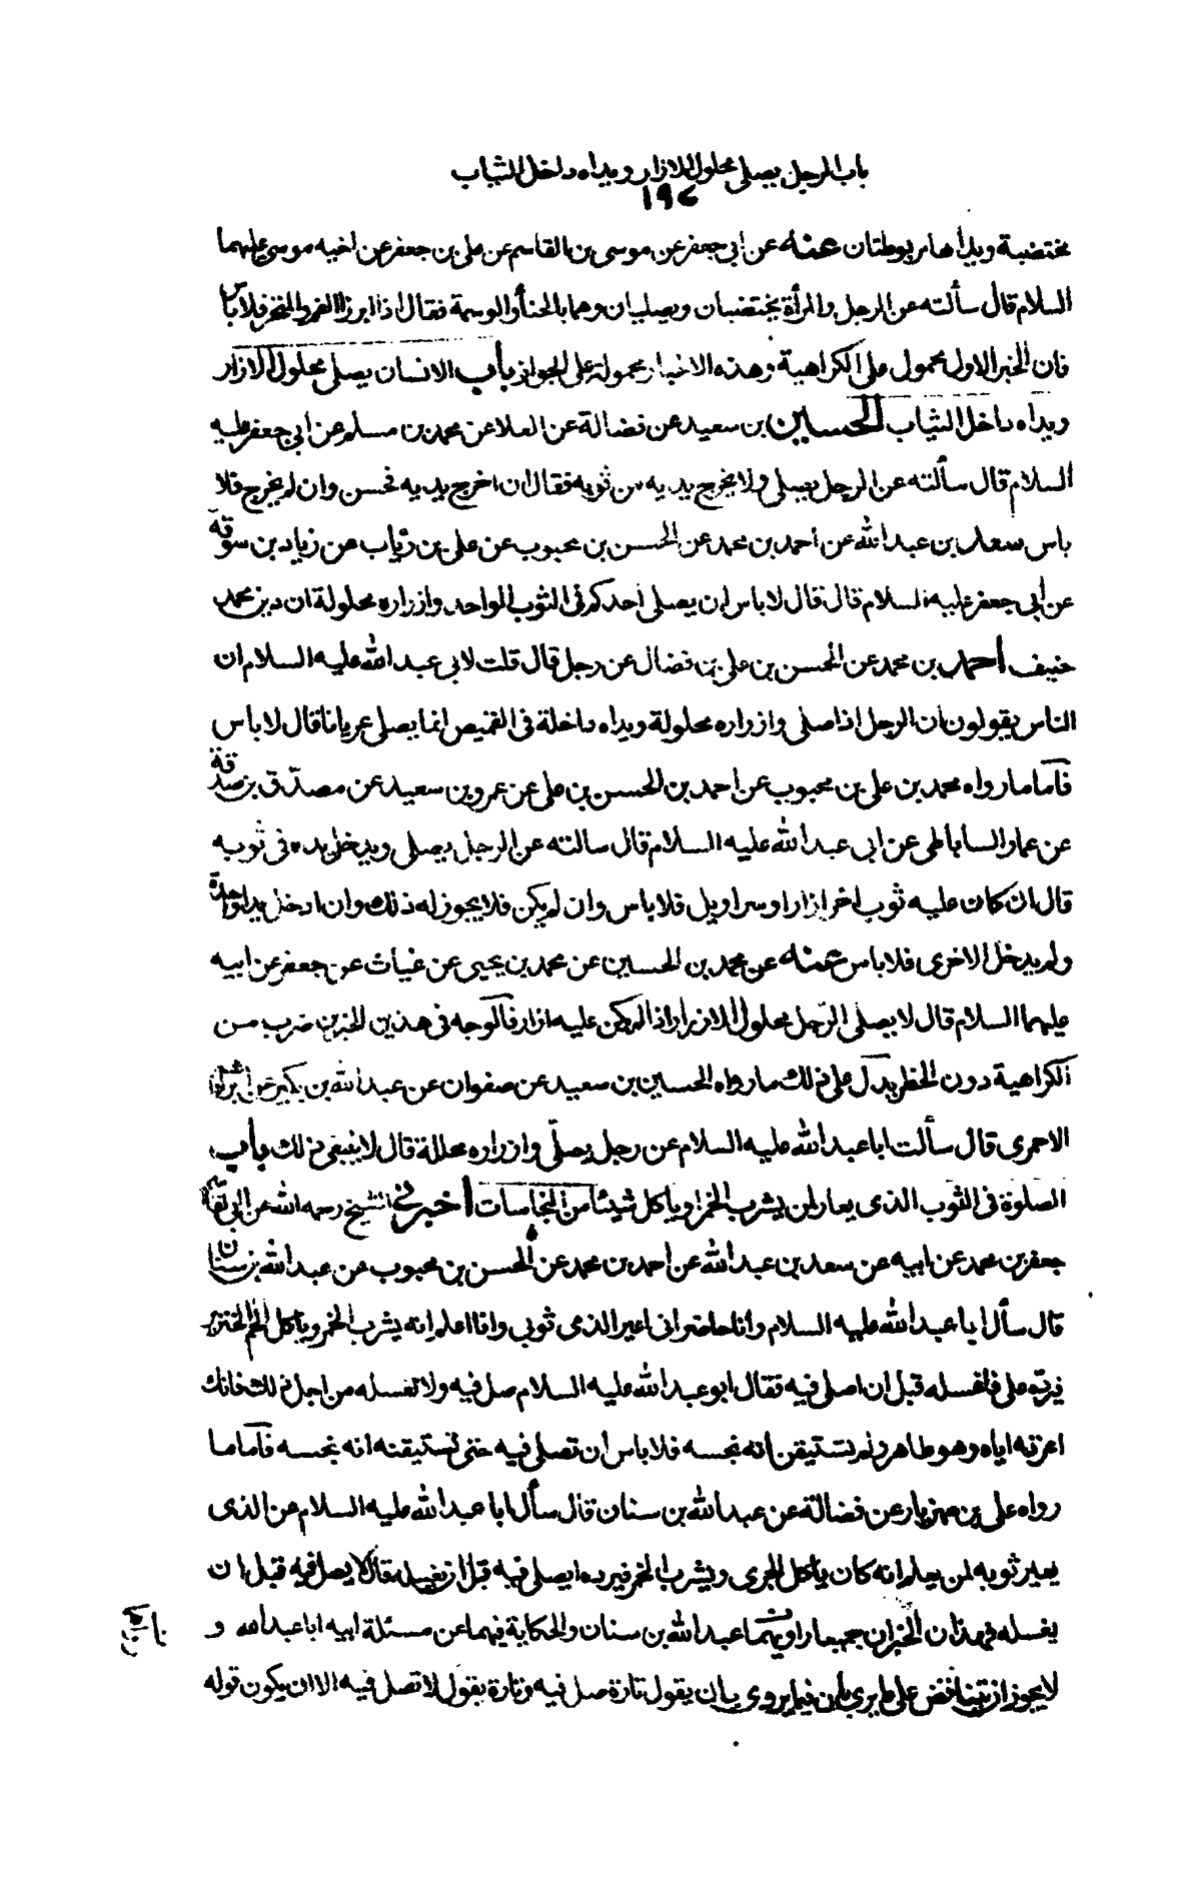 باب الرجل يصلي محلول الازار ويداه داخل الثياب
١٩٤
مختضبة ويداها مربوطتان عنه عن ابي جعفر عن موسى بن القاسم عن علي بن جعفر عن اخيه موسى عليهما
السلام قال سألته عن الرجل والمرأة يختضبان ويصليان وهما بالحنأ والوسمة فقال اذا ابرزا الفم والمنخر فلا باس
فان الخبر الاول محمول على الكراهية وهذه الاخبار محمولة على الجواز باب الانسان يصلي محلول الازار
ويداه داخل الثياب الحسين بن سعيد عن فضالة عن العلا عن محمد بن مسلم عن ابي جعفر عليه
السلام قال سألته عن الرجل يصلي ولا يخرج يديه من ثوبيه فقال ان اخرج يديه فحسن وان لم يخرج فلا
باس سعد بن عبد الله عن احمد بن محمد عن الحسن بن محبوب عن علي بن رئاب عن زياد بن سوقة
عن ابي جعفر عليه السلام قال قال لا باس ان يصلي احدكم في الثوب الواحد وازراره محلولة ان دين محمد
حنيف احمد بن محمد عن الحسن بن علي بن فضال عن رجل قال قلت لابي عبد الله عليه السلام ان
الناس يقولون ان الرجل اذا صلى وازراره محلولة ويداه داخلة في القميص انما يصلي عريانا قال لا باس
فاما ما رواه محمد بن علي بن محبوب عن احمد بن الحسن بن علي عن عمرو بن سعيد عن مصدّق بن صدقة
عن عمار الساباطي عن ابي عبد الله عليه السلام قال سالته عن الرجل يصلي ويدخل يده في ثوبه
قال ان كان عليه ثوب اخر ازار او سراويل فلا باس وان لم يكن فلا يجوز له ذلك وان ادخل يدا واحدة
ولم يدخل الاخرى فلا باس عنه عن محمد بن الحسين عن محمد بن يحيى عن غياث عن جعفر عن ابيه
عليهما السلام قال لا يصلي الرّجل محلول الازرار اذا لم يكن عليه ازار فالوجه في هذين الخبرين ضرب من
الكراهية دون الحظر يدل على ذلك ما رواه الحسين بن سعيد عن صفوان عن عبد الله بن بكير عن ابراهيم
الاحمري قال سألت ابا عبد الله عليه السلام عن رجل يصلّي وازراره محللة قال لا ينبغي ذلك باب
الصلوة في الثوب الذي يعار لمن يشرب الخمر او ياكل شيئا من النجاسات اخبرني الشيخ رحمه الله عن ابي القاسم
جعفر بن محمد عن ابيه عن سعد بن عبد الله عن احمد بن محمد عن الحسن بن محبوب عن عبد الله بن سنان
قال سأل ابا عبد الله عليه السلام وانا حاضر اني اعير الذمي ثوبي وانا اعلم انه يشرب الخمر وياكل لحم الخنزير
فيردّه علي فاغسله قبل ان اصلي فيه فقال ابو عبد الله عليه السلام صل فيه ولا تغسله من اجل ذلك فانك
اعرته اياه وهو طاهر ولم تستيقن انه نجسه فلا باس ان تصلي فيه حتى تستيقنه انه نجسه فاما ما
رواه علي بن مهزيار عن فضالة عن عبد الله بن سنان قال سأل ابا عبد الله عليه السلام عن الذي
يعير ثوبه لمن يعلم انه كان ياكل الجري ويشرب الخمر فيرده ايصلي فيه قبل ان يغسله قال لا يصل فيه قبل ان
يغسله فهذان الخبران جميعا راويهما عبد الله بن سنان والحكاية فيهما عن مسئلة ابيه ابا عبد الله و
لا يجوز ان يتناقض على ما يرى بان فيما يروى بان يقول تارة صل فيه وتارة يقول لا تصل فيه الا ان يكون قوله